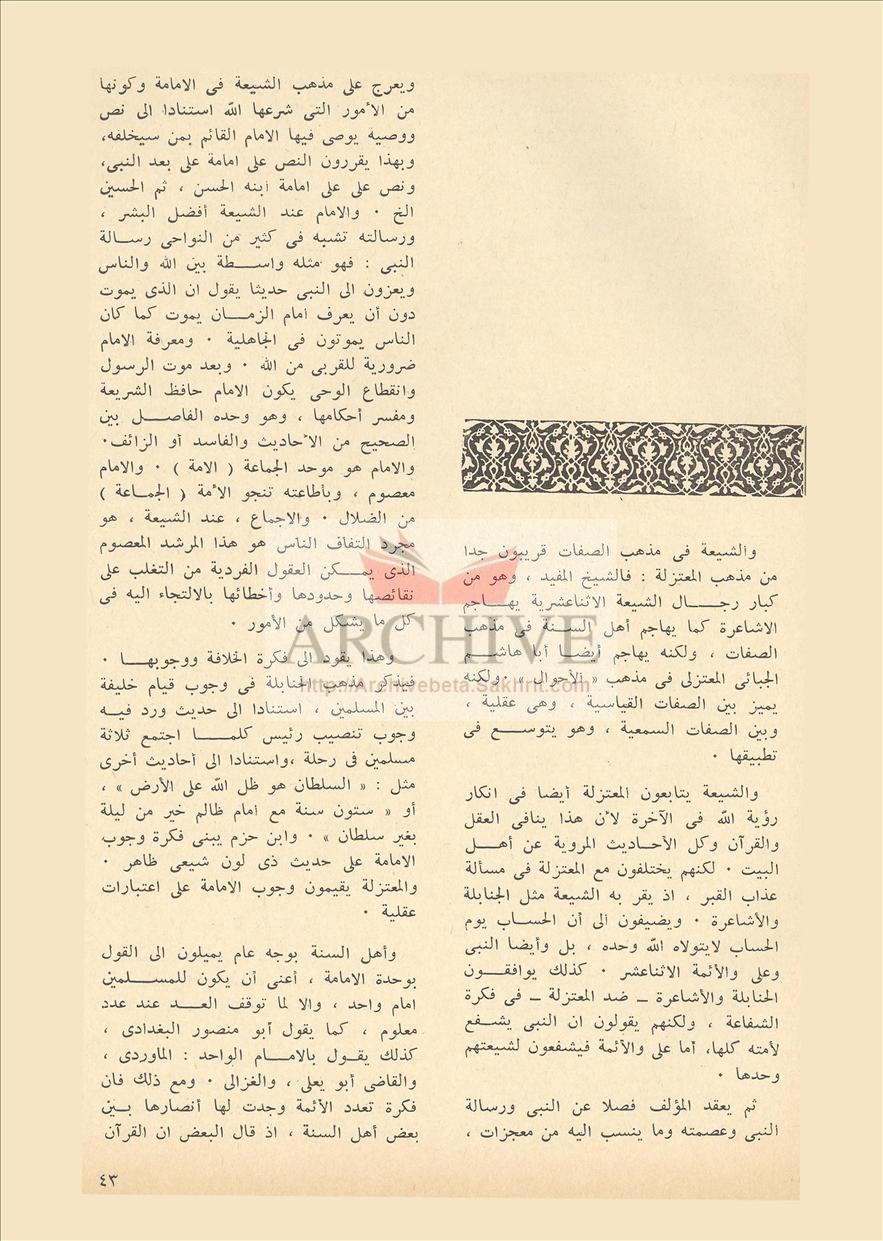 والشيعة فى مذهب الصفات قريبون جدا
من مذهب المعتزلة : فالشيخ المفيد ، وهو من
كبار رجال الشيعة الاثناعشرية يهاجم
الاشاعرة كما يهاجم أهل السنة فى مذهب
الصفات ، ولكنه يهاجم أيضا أبا هاشم
الجبائى المعتزلى فى مذهب « الأحوال » ٠ ولكنه
يميز بين الصفات القياسية ، وهى عقلية ،
وبين الصفات السمعية ، وهو يتوسع فى
تطبيقها ٠
والشيعة يتابعون المعتزلة أيضا فى انكار
رؤية الله فى الآخرة لأن هذا ينافى العقل
والقرآن وكل الأحاديث المروية عن أهل
البيت ٠ لكنهم يختلفون مع المعتزلة فى مسألة
عذاب القبر ، اذ يقر به الشيعة مثل الحنابلة
والأشاعرة ٠ ويضيفون الى أن الحساب يوم
الحساب لايتولاه الله وحده ، بل وأيضا النبى
وعلى والأئمة الاثناعشر ٠ كذلك يوافقون
الحنابلة والأشاعرة ـ ضد المعتزلة ـ فى فكرة
الشفاعة ، ولكنهم يقولون ان النبى يشفع
لأمته كلها، أما على والأئمة فيشفعون لشيعتهم
وحدها ٠
ثم يعقد المؤلف فصلا عن النبى ورسالة
النبى وعصمته وما ينسب اليه من معجزات ،
ويعرج على مذهب الشيعة فى الامامة وكونها
من الأمور التى شرعها الله استنادا الى نص
ووصية يوصى فيها الامام القائم بمن سيخلفه،
وبهذا يقررون النص على امامة على بعد النبى،
ونص على على امامة ابنه الحسن ، ثم الحسين
الخ ٠ والامام عند الشيعة أفضل البشر ،
ورسالته تشبه فى كثير من النواحى رسالة
النبى : فهو مثله واسطة بين الله والناس
ويعزون الى النبى حديثا يقول ان الذى يموت
دون أن يعرف امام الزمان يموت كما كان
الناس يموتون فى الجاهلية ٠ ومعرفة الامام
ضرورية للقربى من الله ٠ وبعد موت الرسول
وانقطاع الوحى يكون الامام حافظ الشريعة
ومفسر أحكامها ، وهو وحده الفاصل بين
الصحيح من الأحاديث والفاسد أو الزائف٠
والامام هو موحد الجماعة ( الامة ) ٠ والامام
معصوم ، وبأطاعته تنجو الأمة ( الجماعة )
من الضلال ٠ والاجماع ، عند الشيعة ، هو
مجرد التفاف الناس هو هذا المرشد المعصوم
الذى يمكن العقول الفردية من التغلب على
نقائصها وحدودها وأخطائها بالالتجاء اليه فى
كل ما يشكل من الأمور ٠
وهذا يقود الى فكرة الخلافة ووجوبها ٠
فيذكر مذهب الحنابلة فى وجوب قيام خليفة
بين المسلمين ، استنادا الى حديث ورد فيه
وجوب تنصيب رئيس كلما اجتمع ثلاثة
مسلمين فى رحلة ،واستنادا الى أحاديث أخرى
مثل : « السلطان هو ظل الله على الأرض » ،
أو « ستون سنة مع امام ظالم خير من ليلة
بغير سلطان » ٠ وابن حزم يبنى فكرة وجوب
الامامة على حديث ذى لون شيعى ظاهر ٠
والمعتزلة يقيمون وجوب الامامة على اعتبارات
عقلية ٠
وأهل السنة بوجه عام يميلون الى القول
بوحدة الامامة ، أعنى أن يكون للمسلمين
امام واحد ، والا لما توقف العد عند عدد
معلوم ، كما يقول أبو منصور البغدادى ،
كذلك يقول بالامام الواحد : الماوردى ،
والقاضى أبو يعلى ، والغزالى ٠ ومع ذلك فان
فكرة تعدد الأئمة وجدت لها أنصارها بين
بعض أهل السنة ، اذ قال البعض ان القرآن
٤٣
ARCHIVE
http://Archivebeta.Sakhrit.com